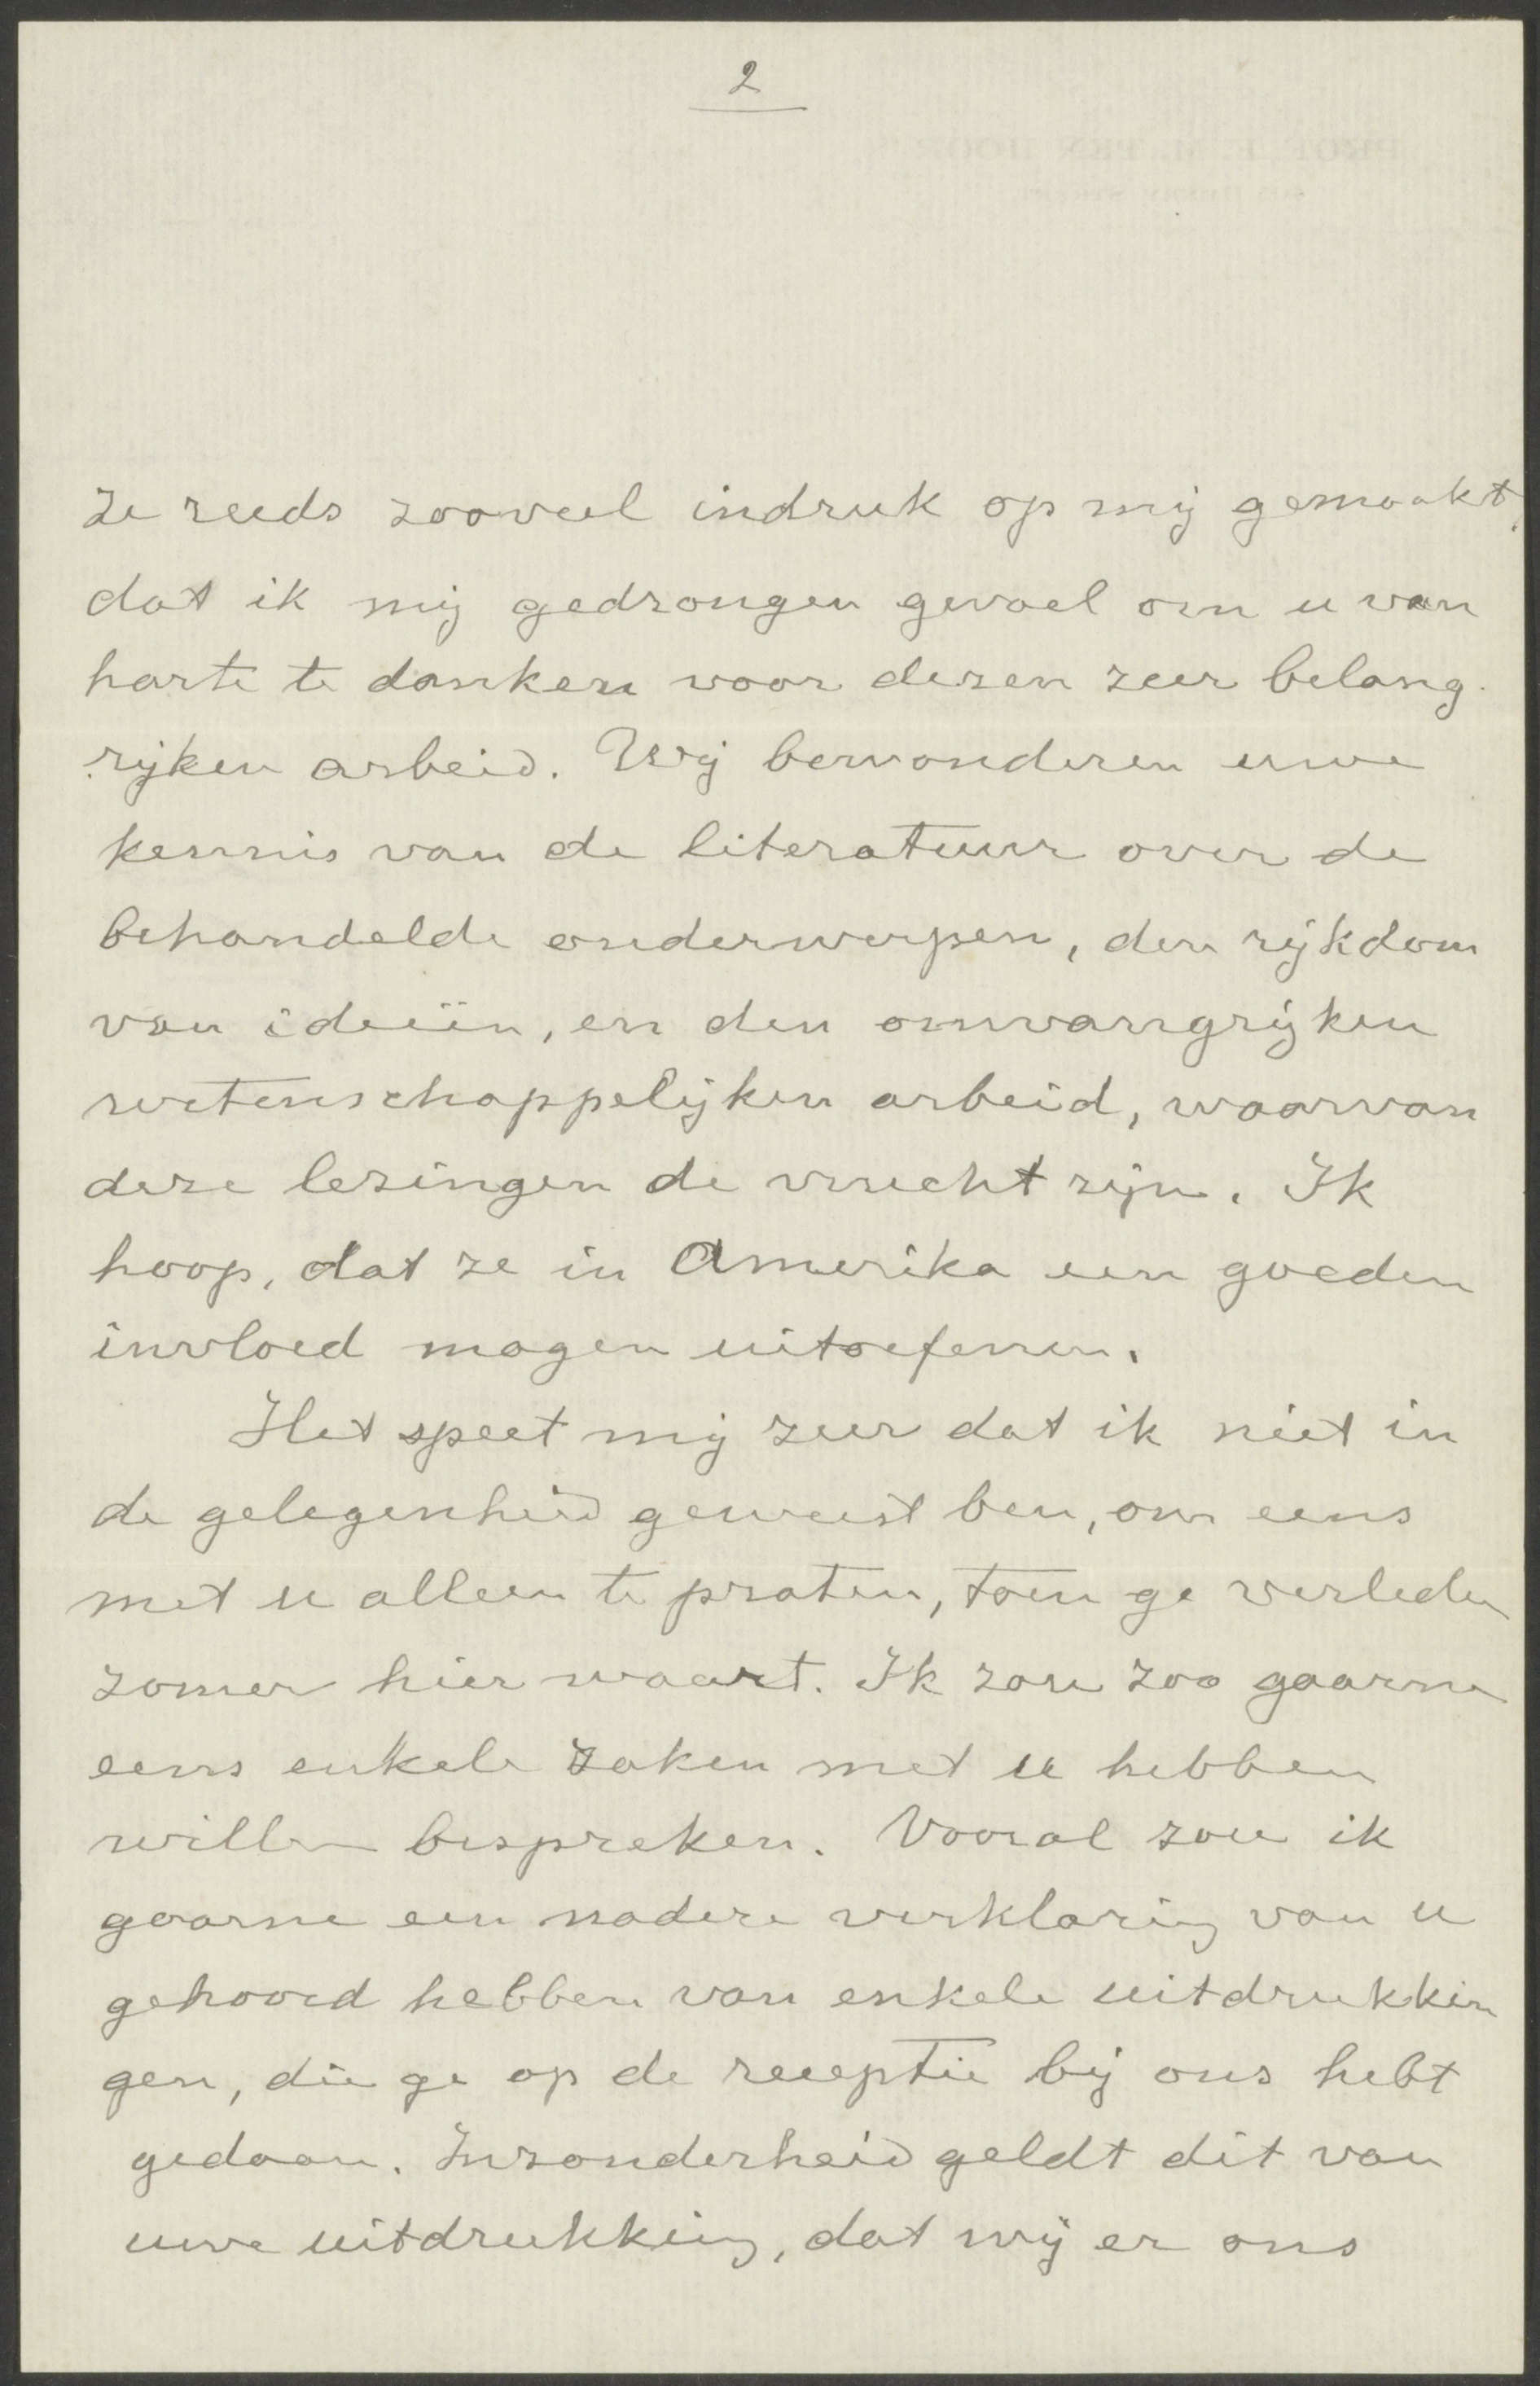 2
ze reeds zooveel indruk op mij gemaakt,
dat ik mij gedrongen gevoel om u van
harte te danken voor dezen zeer belang-
rijken arbeid. Wij bewonderen uwe
kennis van de literatuur over de
behandelde onderwerpen, den rijkdom
van ideëin, en den omvangrijken
wetenschappelijken arbeid, waarvan
deze lezingen de vrucht zijn. Ik
hoop, dat ze in Amerika een goeden
invloed mogen uitoefenen.
Het speet mij zeer dat ik niet in
de gelegenheid geweest ben, om eens
met u alleen te praten, toen ge verleden
zomer hier waart. Ik zou zoo gaarne
eens enkele zaken met u hebben
willen bespreken. Vooral zou ik
gaarne een nadere verklaring van u
gehoord hebben van enkele uitdrukkin
gen, die ge op de receptie bij ons hebt
gedaan. Inzonderheid geldt dit van
uwe uitdrukking, dat wij er ons